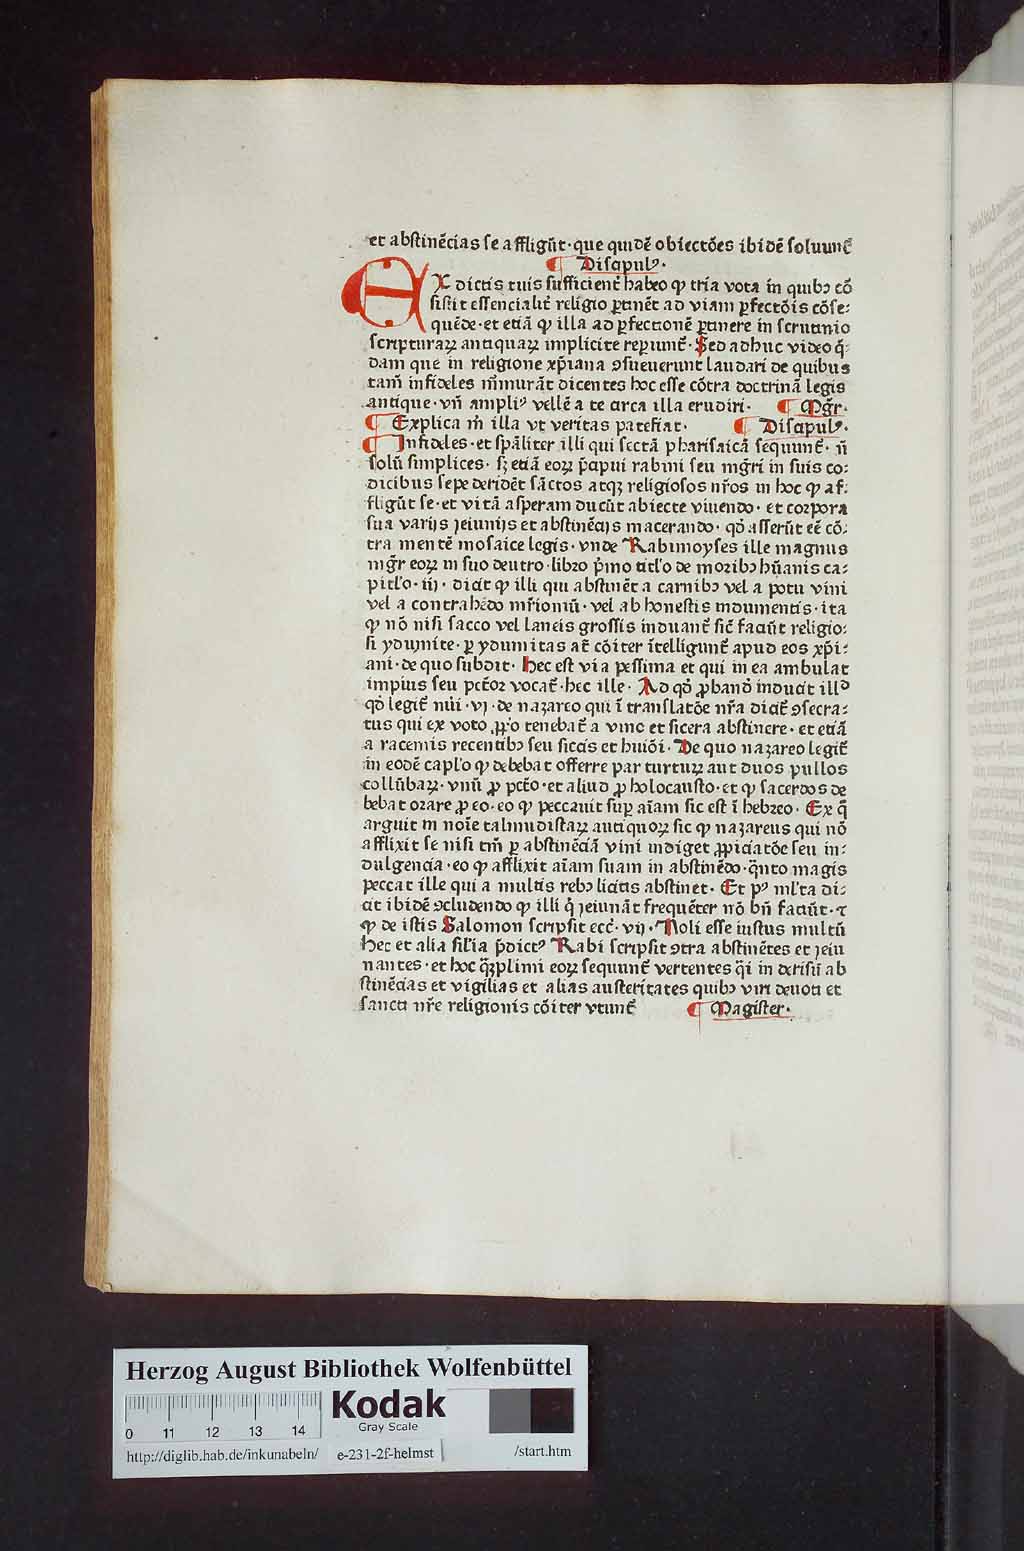 et abstinẽcias se affligũt· que quidẽ obiectões ibidẽ soluunt̃
¶ Discipulꝰ·
EX dictis tuis sufficient̃ habeo ꝙ tria vota in quibꝫ cõ
sistit essencialit̃ religio ꝑtinẽt ad viam ꝑfectõis cõse⸗
quẽde· et etiã ꝙ illa ad ꝑfectionẽ ꝑtinere in scrutinio
scripturaꝝ antiquaꝝ implicite reꝑiunt̃· Sed adhuc video q̃⸗
dam que in religione xp̃iana ꝯsueuerunt laudari de quibus
tam̃ infideles m̃murãt dicentes hoc esse cõtra doctrinã legis
antique· vñ ampliꝰ vellẽ a te circa illa erudiri· ¶ Mg̃r·
¶ Explica m̃ illa vt veritas patefiat· ¶ Discipulꝰ·
¶ Infideles· et spãliter illi qui sectã pharisaicã sequunt̃· ñ
solũ simplices· sꝫ etiã eoꝝ p̃cipui rabini seu mg̃ri in suis co⸗
dicibus sepe deridẽt sãctos atqꝫ religiosos nr̃os in hoc ꝙ af⸗
fligũt se· et vitã asperam ducũt abiecte viuendo· et corpora
sua varijs jeiunijs et abstinẽcijs macerando· qd̃ asserũt eẽ cõ⸗
tra mentẽ mosaice legis· vnde Rabimoyses ille magnus
mg̃r eoꝝ in suo deutro· libro p̃mo titl'o de moribꝫ hũanis ca⸗
pitl'o· iij· dicit ꝙ illi qui abstinẽt a carnibꝫ vel a potu vini
vel a contrahẽdo mr̃ioniũ· vel ab honestis indumentis· ita
ꝙ nõ nisi sacco vel laneis grossis induant̃ sic̃ faciũt religio⸗
si ydumite· ꝑ ydumitas at̃ cõiter ĩtelligunt̃ apud eos xp̃i⸗
ani· de quo subdit· Hec est via pessima et qui in ea ambulat
impius seu pct̃or vocat̃· hec ille· Ad qd̃ ꝓband̃ inducit illᵈ
qd̃ legit̃ nũi· vj· de nazareo qui ĩ translatõe nr̃a dicit̃ ꝯsecra⸗
tus qui ex voto ꝓp'o tenebat̃ a vino et sicera abstinere· et etiã
a racemis recentibꝫ seu siccis et huiõi· De quo nazareo legit̃
in eodẽ capl'o ꝙ debebat offerre par turtuꝝ aut duos pullos
collũbaꝝ· vnũ ꝓ pct̃o· et aliud ꝓ holocausto· et ꝙ sacerdos de
bebat orare ꝓ eo· eo ꝙ peccauit suꝑ aĩam sic est ĩ hebreo· Ex q̃
arguit in noĩe talmudistaꝝ antiquoꝝ sic ꝙ nazareus qui nõ
afflixit se nisi tm̃ ꝑ abstinẽciã vini indiget ꝓpiciatõe seu in⸗
dulgencia· eo ꝙ afflixit aĩam suam in abstinẽdo· q̃nto magis
peccat ille qui a multis rebꝫ licitis abstinet· Et pꝰ ml'ta di⸗
cit ibidẽ ꝯcludendo ꝙ illi q̃ jeiunãt frequẽter nõ bñ faciũt· ꞇ
ꝙ de istis Salomon scripsit ecc̃· vij· Noli esse iustus multũ
Hec et alia sil'ia p̃dictꝰ Rabi scripsit ꝯtra abstinẽtes et jeiu
nantes· et hoc q̃ꝫplimi eoꝝ sequunt̃ vertentes q̃i in derisũ ab
stinẽcias et vigilias et alias austeritates quibꝫ viri deuoti et
sancti nr̃e religionis cõiter vtunt̃ ¶ Magister·
Herzog August Bibliothek Wolfenbüttel
0 11 12 13 14
Kodak
Gray Scale
http://diglib.hab.de/inkunabeln/ e-231-2f-helmst /start.htm